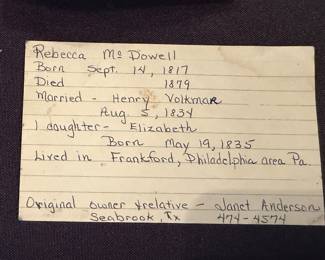 Rebecca McDowell
Born Sept. 14, 1817
Died 1879
Married - Henry Volkmar
Aug 5, 1834
1 daughter - Elizabeth
Born May 19, 1835
Lived in Frankford, Philadelphia area Pa.
Original owner & relative - Janet Anderson
Seabrook, Tx 474-4574